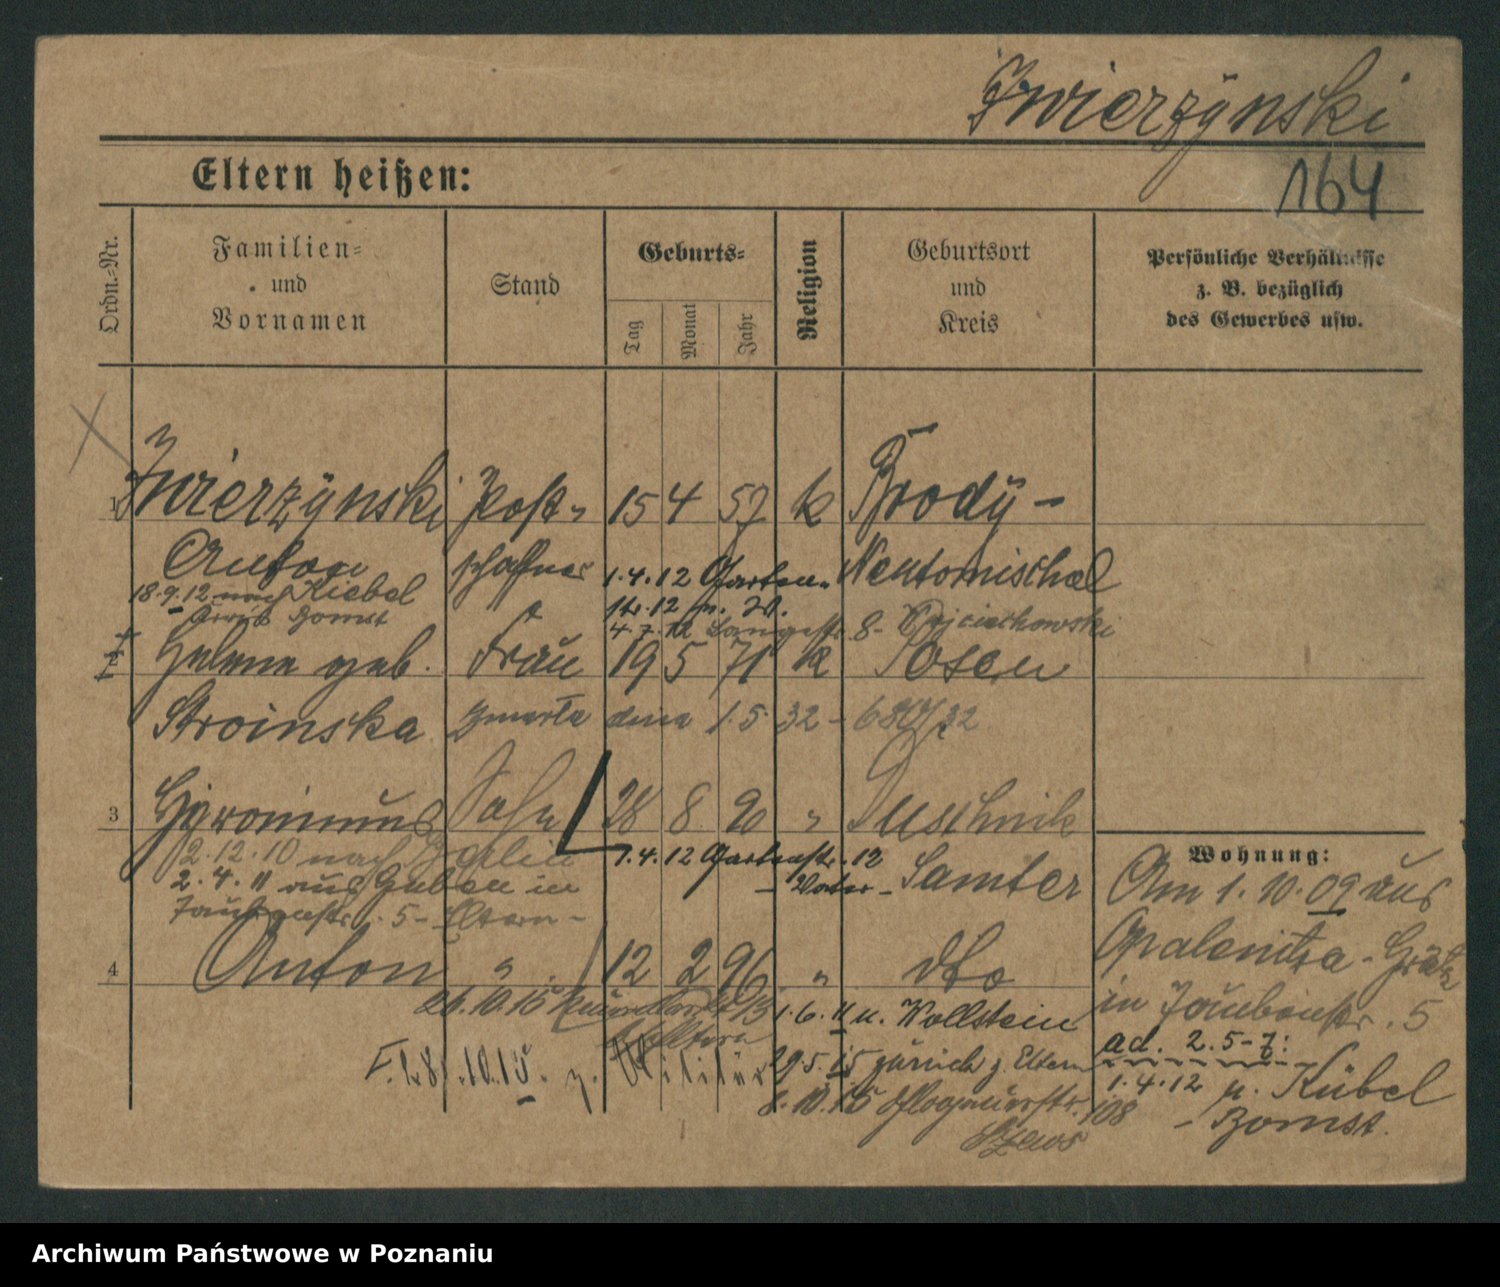 Zwierzÿnski
164
Eltern heißen:
Ordn.-Nr.
Familien-
und
Vornamen
Stand
Geburts-
Tag
Monat
Jahr
Religion
Geburtsort
und
Kreis
Persönliche Verhältnisse
z. B. bezüglich
des Gewerbes usw.
1 Zwierzÿnski Post- 15 4 57 k Brodÿ -
Anton schaffner Neutomischel
1.4.12 Garten-
str. 12 n. W.
18.9.12 nach Kiebel
Kreis Bomst
4.7.12 Langestr. 8 - Wojciechowski
2 Helene geb. Frau 19 5 71 k Posen
Stroinska zmarła dnia 1.5.32 -
3 Hyronimus Sohn 28 8 90 " Duschnik
2.12.10 nach Berlin 1.4.12 Gartenstr. 12
- Vater - Samter
2.4.11 aus Guben in
Taubenstr. 5 - Eltern -
4 Anton " 12 2 96 " dto
26.10.15
1.6.11 n. Wollstein
28.10.15. z. Militär
29.5.15 zurück z. Eltern
1.10.15 108
Wohnung:
Am 1.10.09 aus
Opalenitza - Grätz
in Taubenstr. 5
ad. 2.5-7:
1.4.12 n. Kübel
- Bomst.
Archiwum Państwowe w Poznaniu